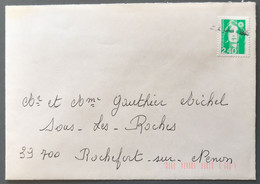 2,40
Mr et Mme Gauthier Michel
Sous - Les - Roches
39 700 Rochefort - sur - Nenon